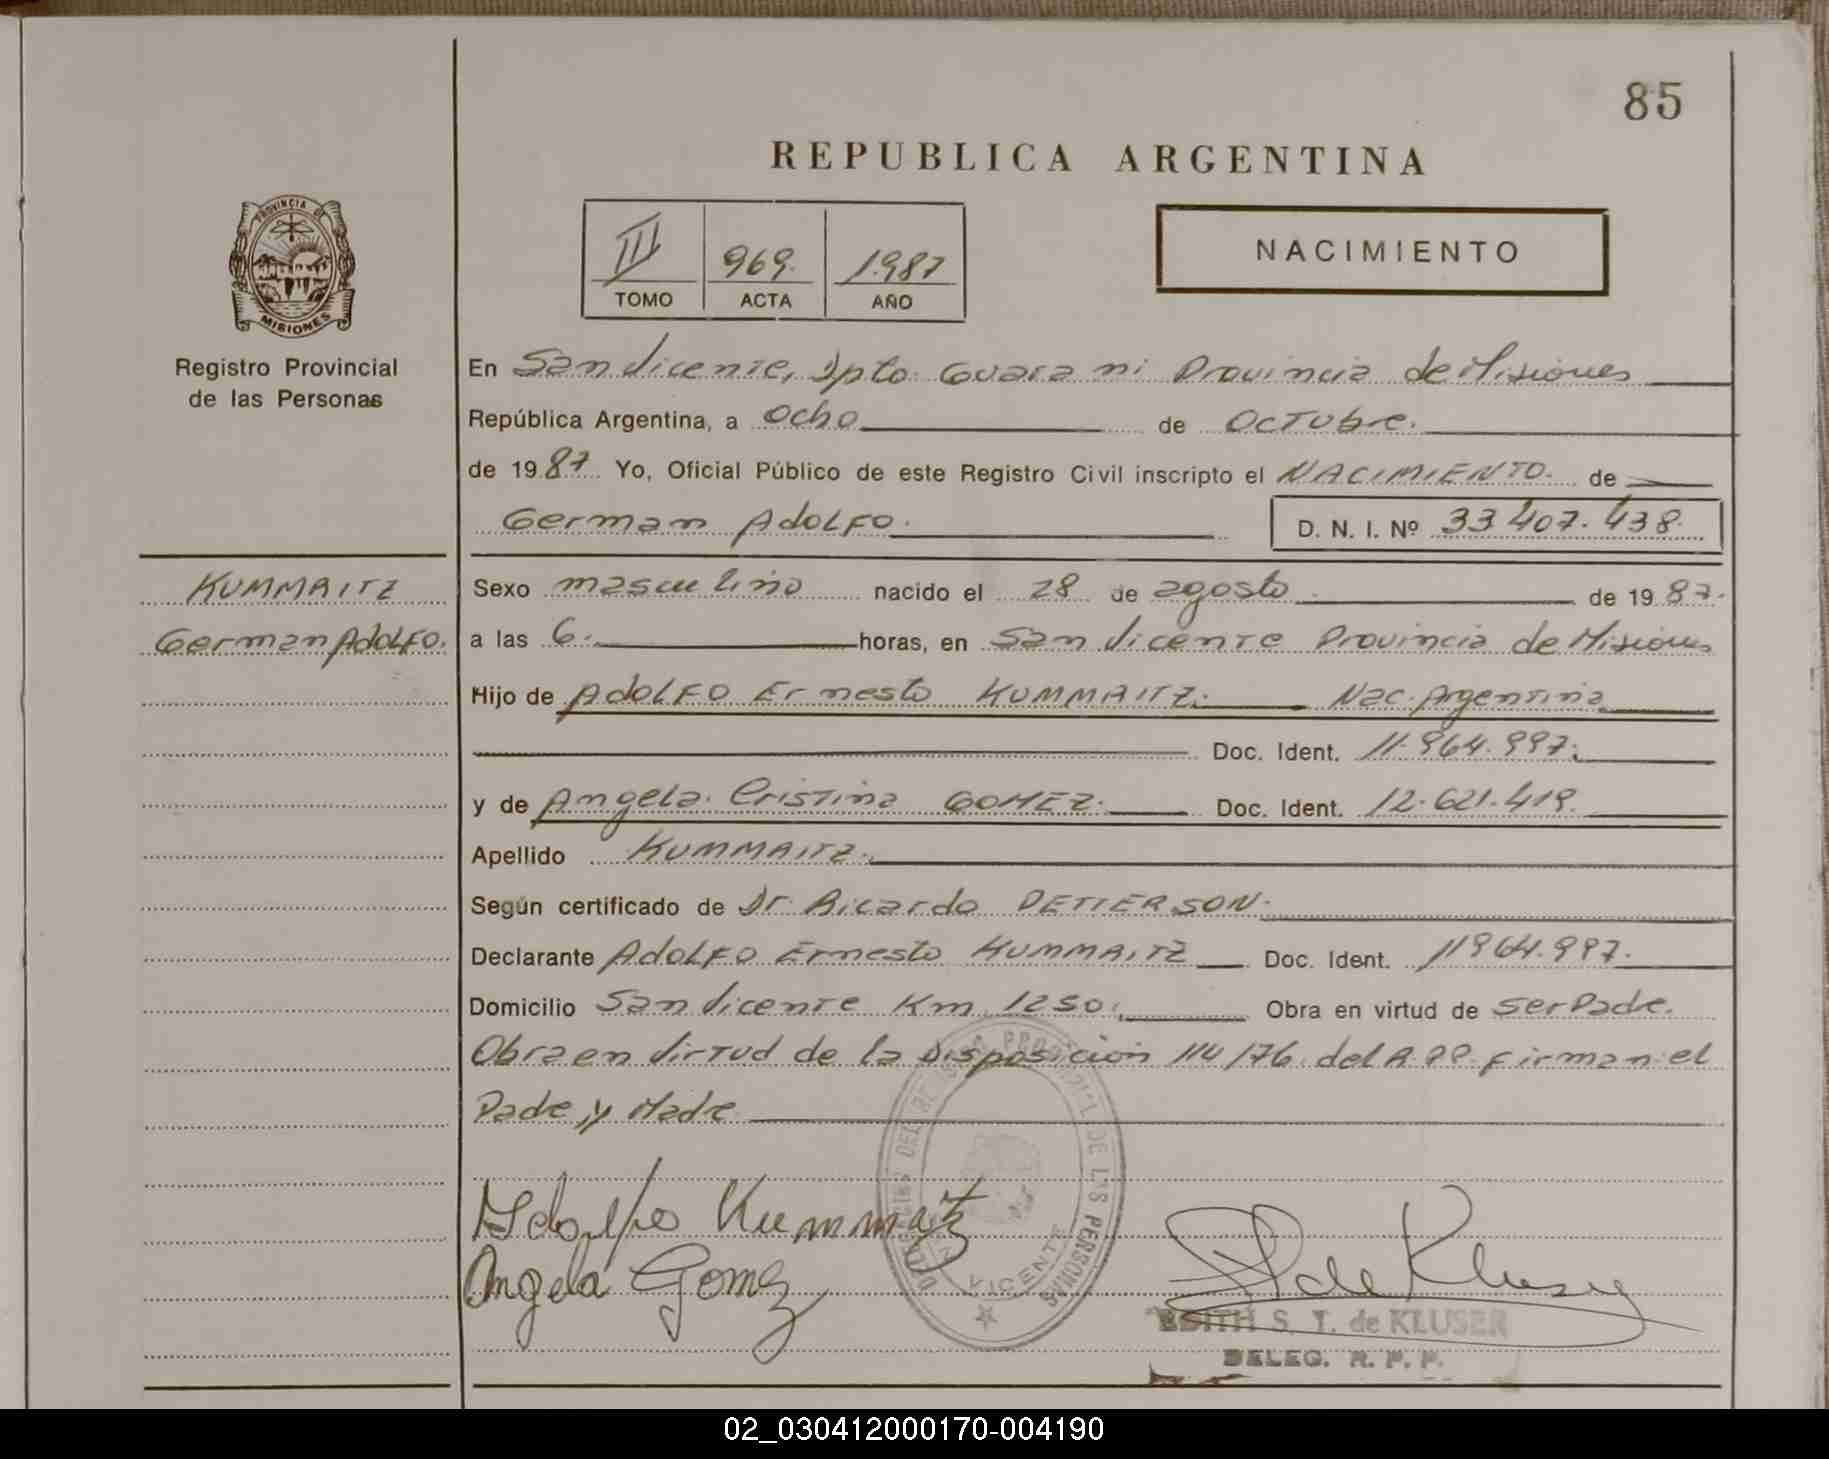 85
REPUBLICA ARGENTINA
PROVINCIA DE
MISIONES
Registro Provincial
de las Personas
III 969. 1.987
TOMO ACTA AÑO
NACIMIENTO
En San Vicente, Dpto. Guarani Provincia de Misiones
República Argentina, a Ocho de Octubre.
de 1987 Yo, Oficial Público de este Registro Civil inscripto el NACIMIENTO. de
German AdoLFO. D. N. I. Nº 33407.438.
KUMMAITZ
German AdoLFO.
Sexo masculino nacido el 28 de agosto de 1987.
a las 6. horas, en San Vicente Provincia de Misiones
Hijo de AdoLFO Ernesto KUMMAITZ. Nac. Argentina
Doc. Ident. 11.964.997.
y de Angela Cristina GOMEZ. Doc. Ident. 12.621.419.
Apellido KUMMAITZ.
Según certificado de Dr. Ricardo PETTERSON.
Declarante AdoLFO Ernesto KUMMAITZ Doc. Ident. 11964.997.
Domicilio San Vicente Km 1250. Obra en virtud de ser Padre.
Obra en Virtud de la Disposicion 114/76. del R.P.P. firman el
Padre y Madre
Adolfo Kummaitz
Angela Gomez
DEL REGISTRO PROVINCIAL DE LAS PERSONAS
VICENTE
de Kluser
EDITH S. T. de KLUSER
DELEG. R. P. P.
02_030412000170-004190